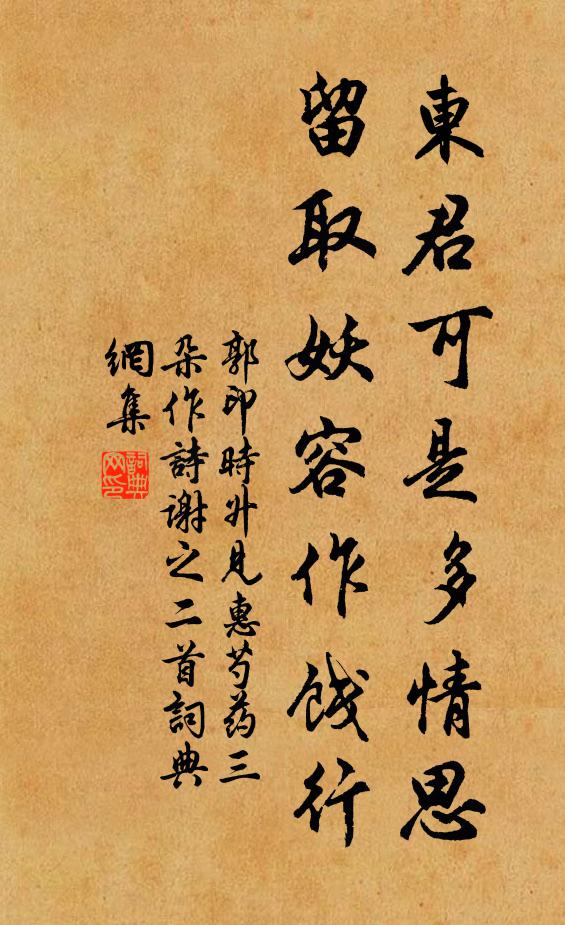 東君可是多情思
留取妖容作餞行
郭印時升見惠芍药三
朵作詩謝之二首詞典
網集
詞典
网印